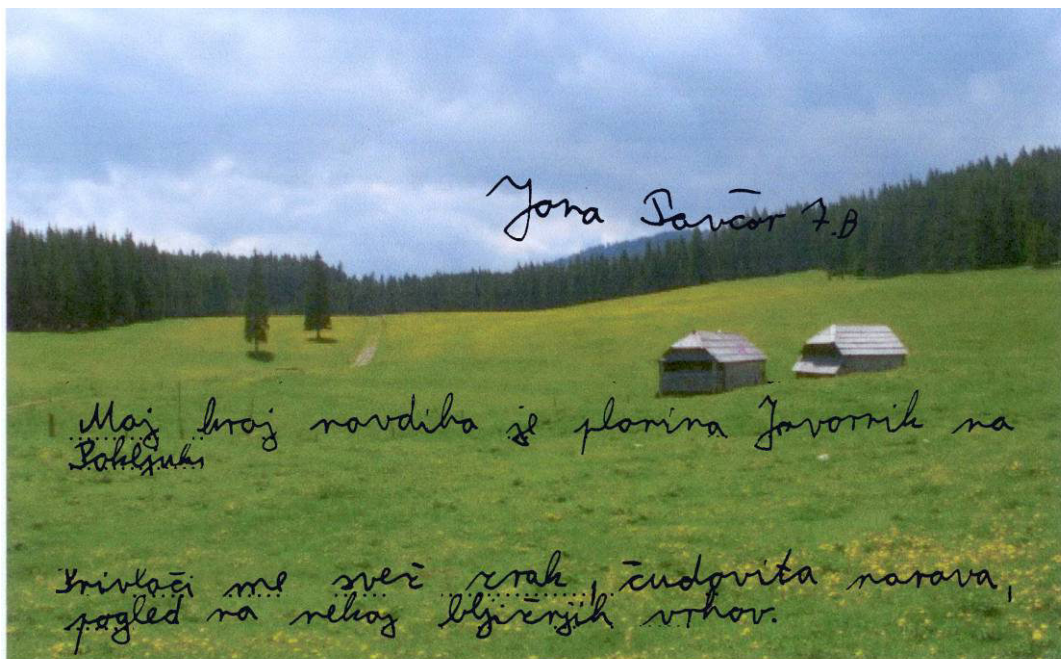 Jona Pavčor 7.B
Moj kraj navdiha je planina Javornik na
Pokljuki
Privlači me svež zrak, čudovita narava,
pogled na nekaj bližnjih vrhov.